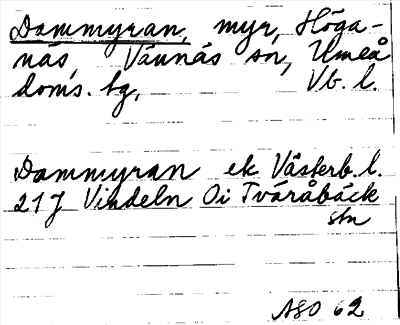 Dammyran, myr, Höga-
näs, Vännäs sn, Umeå
doms. tg, Vb. l.
Dammyran ek Västerb. l.
21J Vindeln Oi Tväråbäck
stn
ASO 62